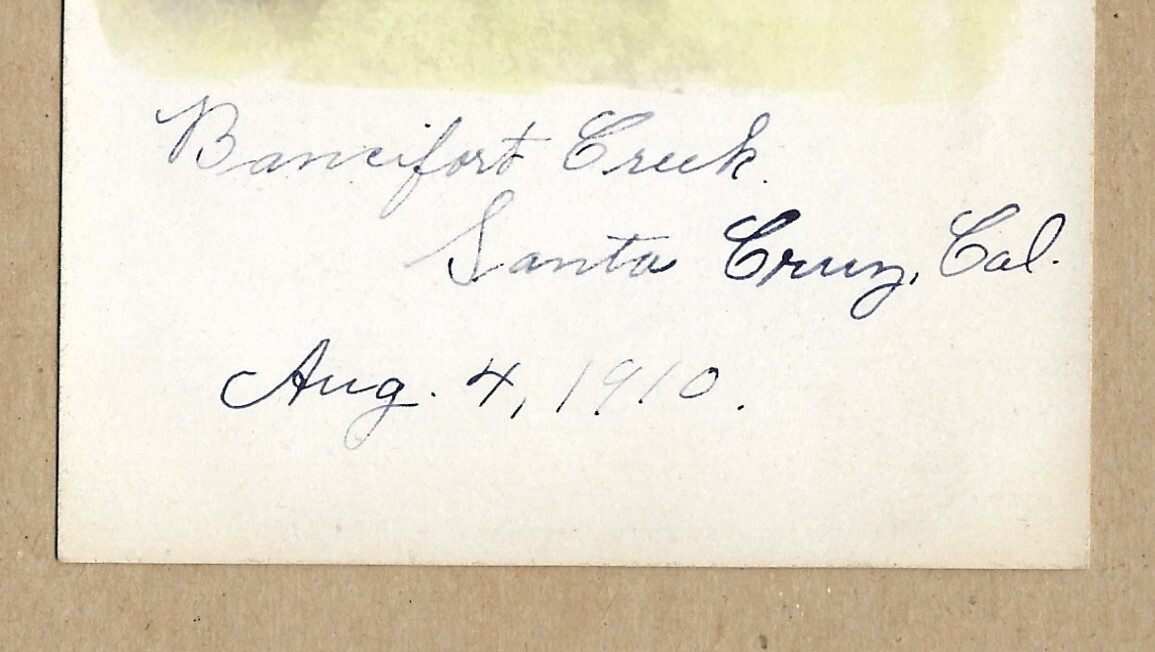 Bancifort Creek.
Santa Cruz, Cal.
Aug. 4, 1910.